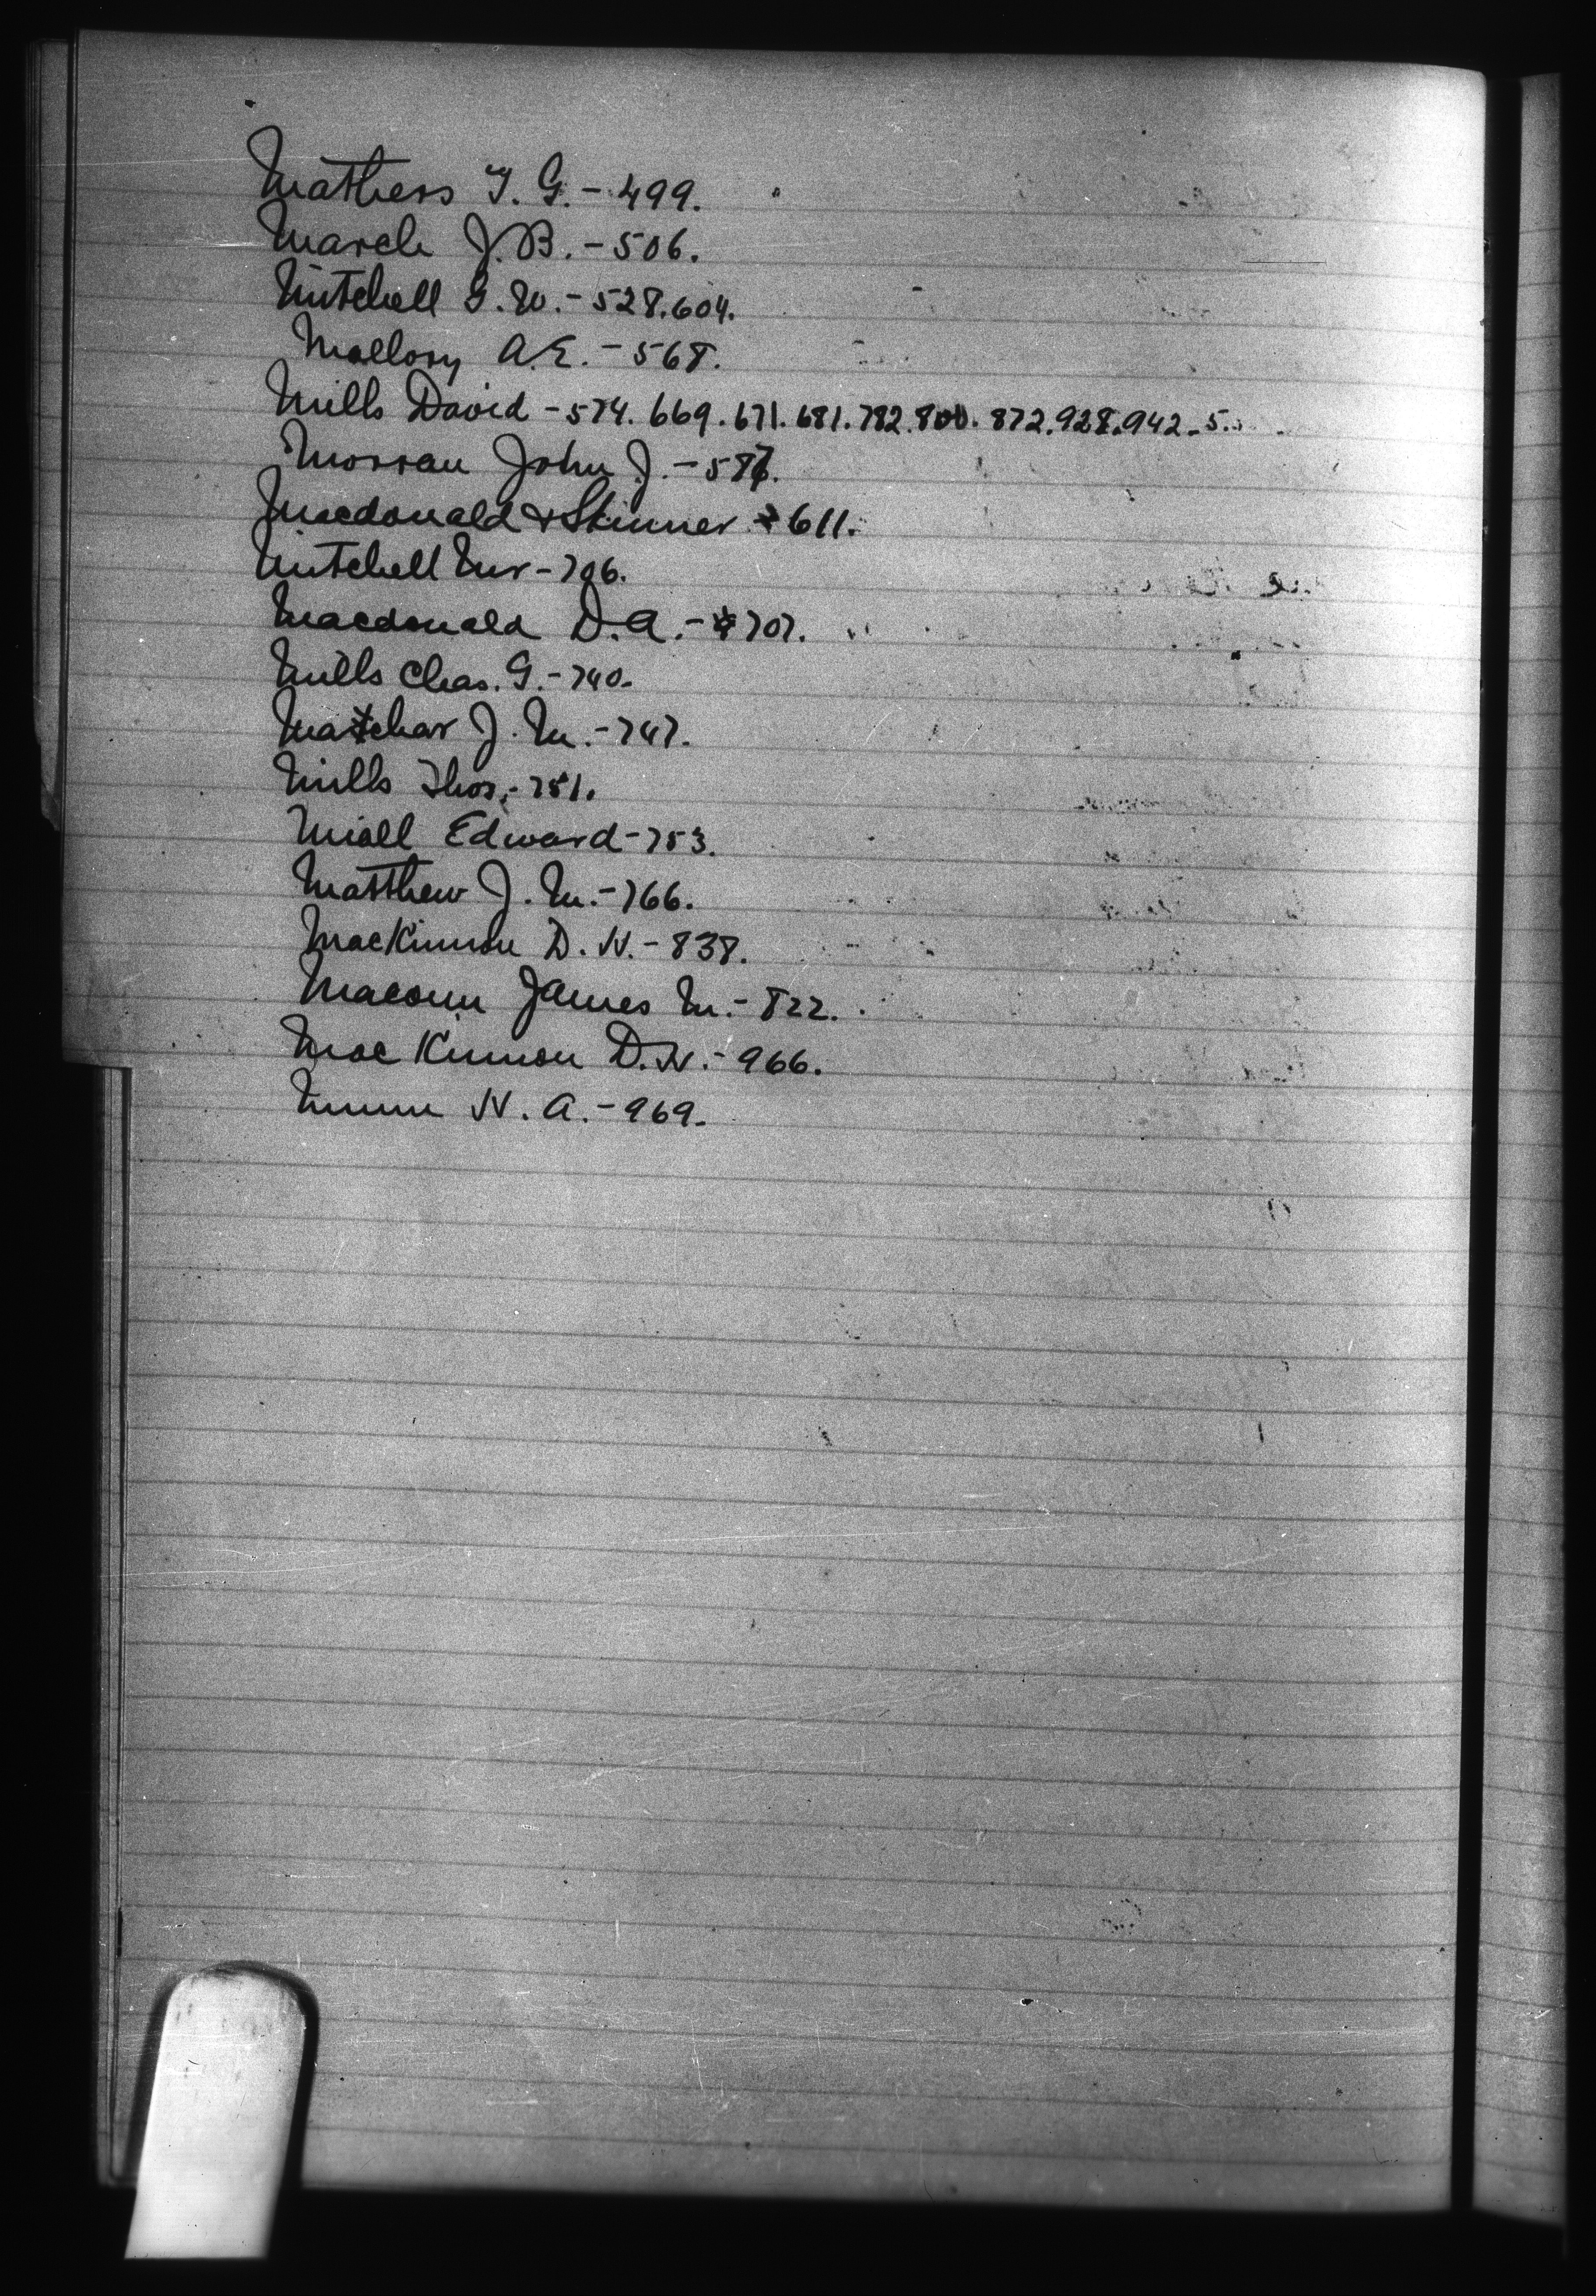 Mathers T. G. - 499.
March J. B. - 506.
Mitchell G. W. - 528. 604.
Mallory A. E. - 568.
Mills David - 574. 669. 671. 681. 782. 800. 872. 928. 942-5.
Morran John J. - 587.
Macdonald & Skinner - 611.
Mitchell Mr - 706.
Macdonald D. A. - 707.
Mills Chas. G. - 740.
Matchar J. M. - 747.
Mills Thos. - 751.
Miall Edward - 753.
Matthew J. M. - 766.
MacKinnon D. W. - 838.
Macoun James M. - 822.
MacKinnon D. W. - 966.
Munn W. A. - 969.